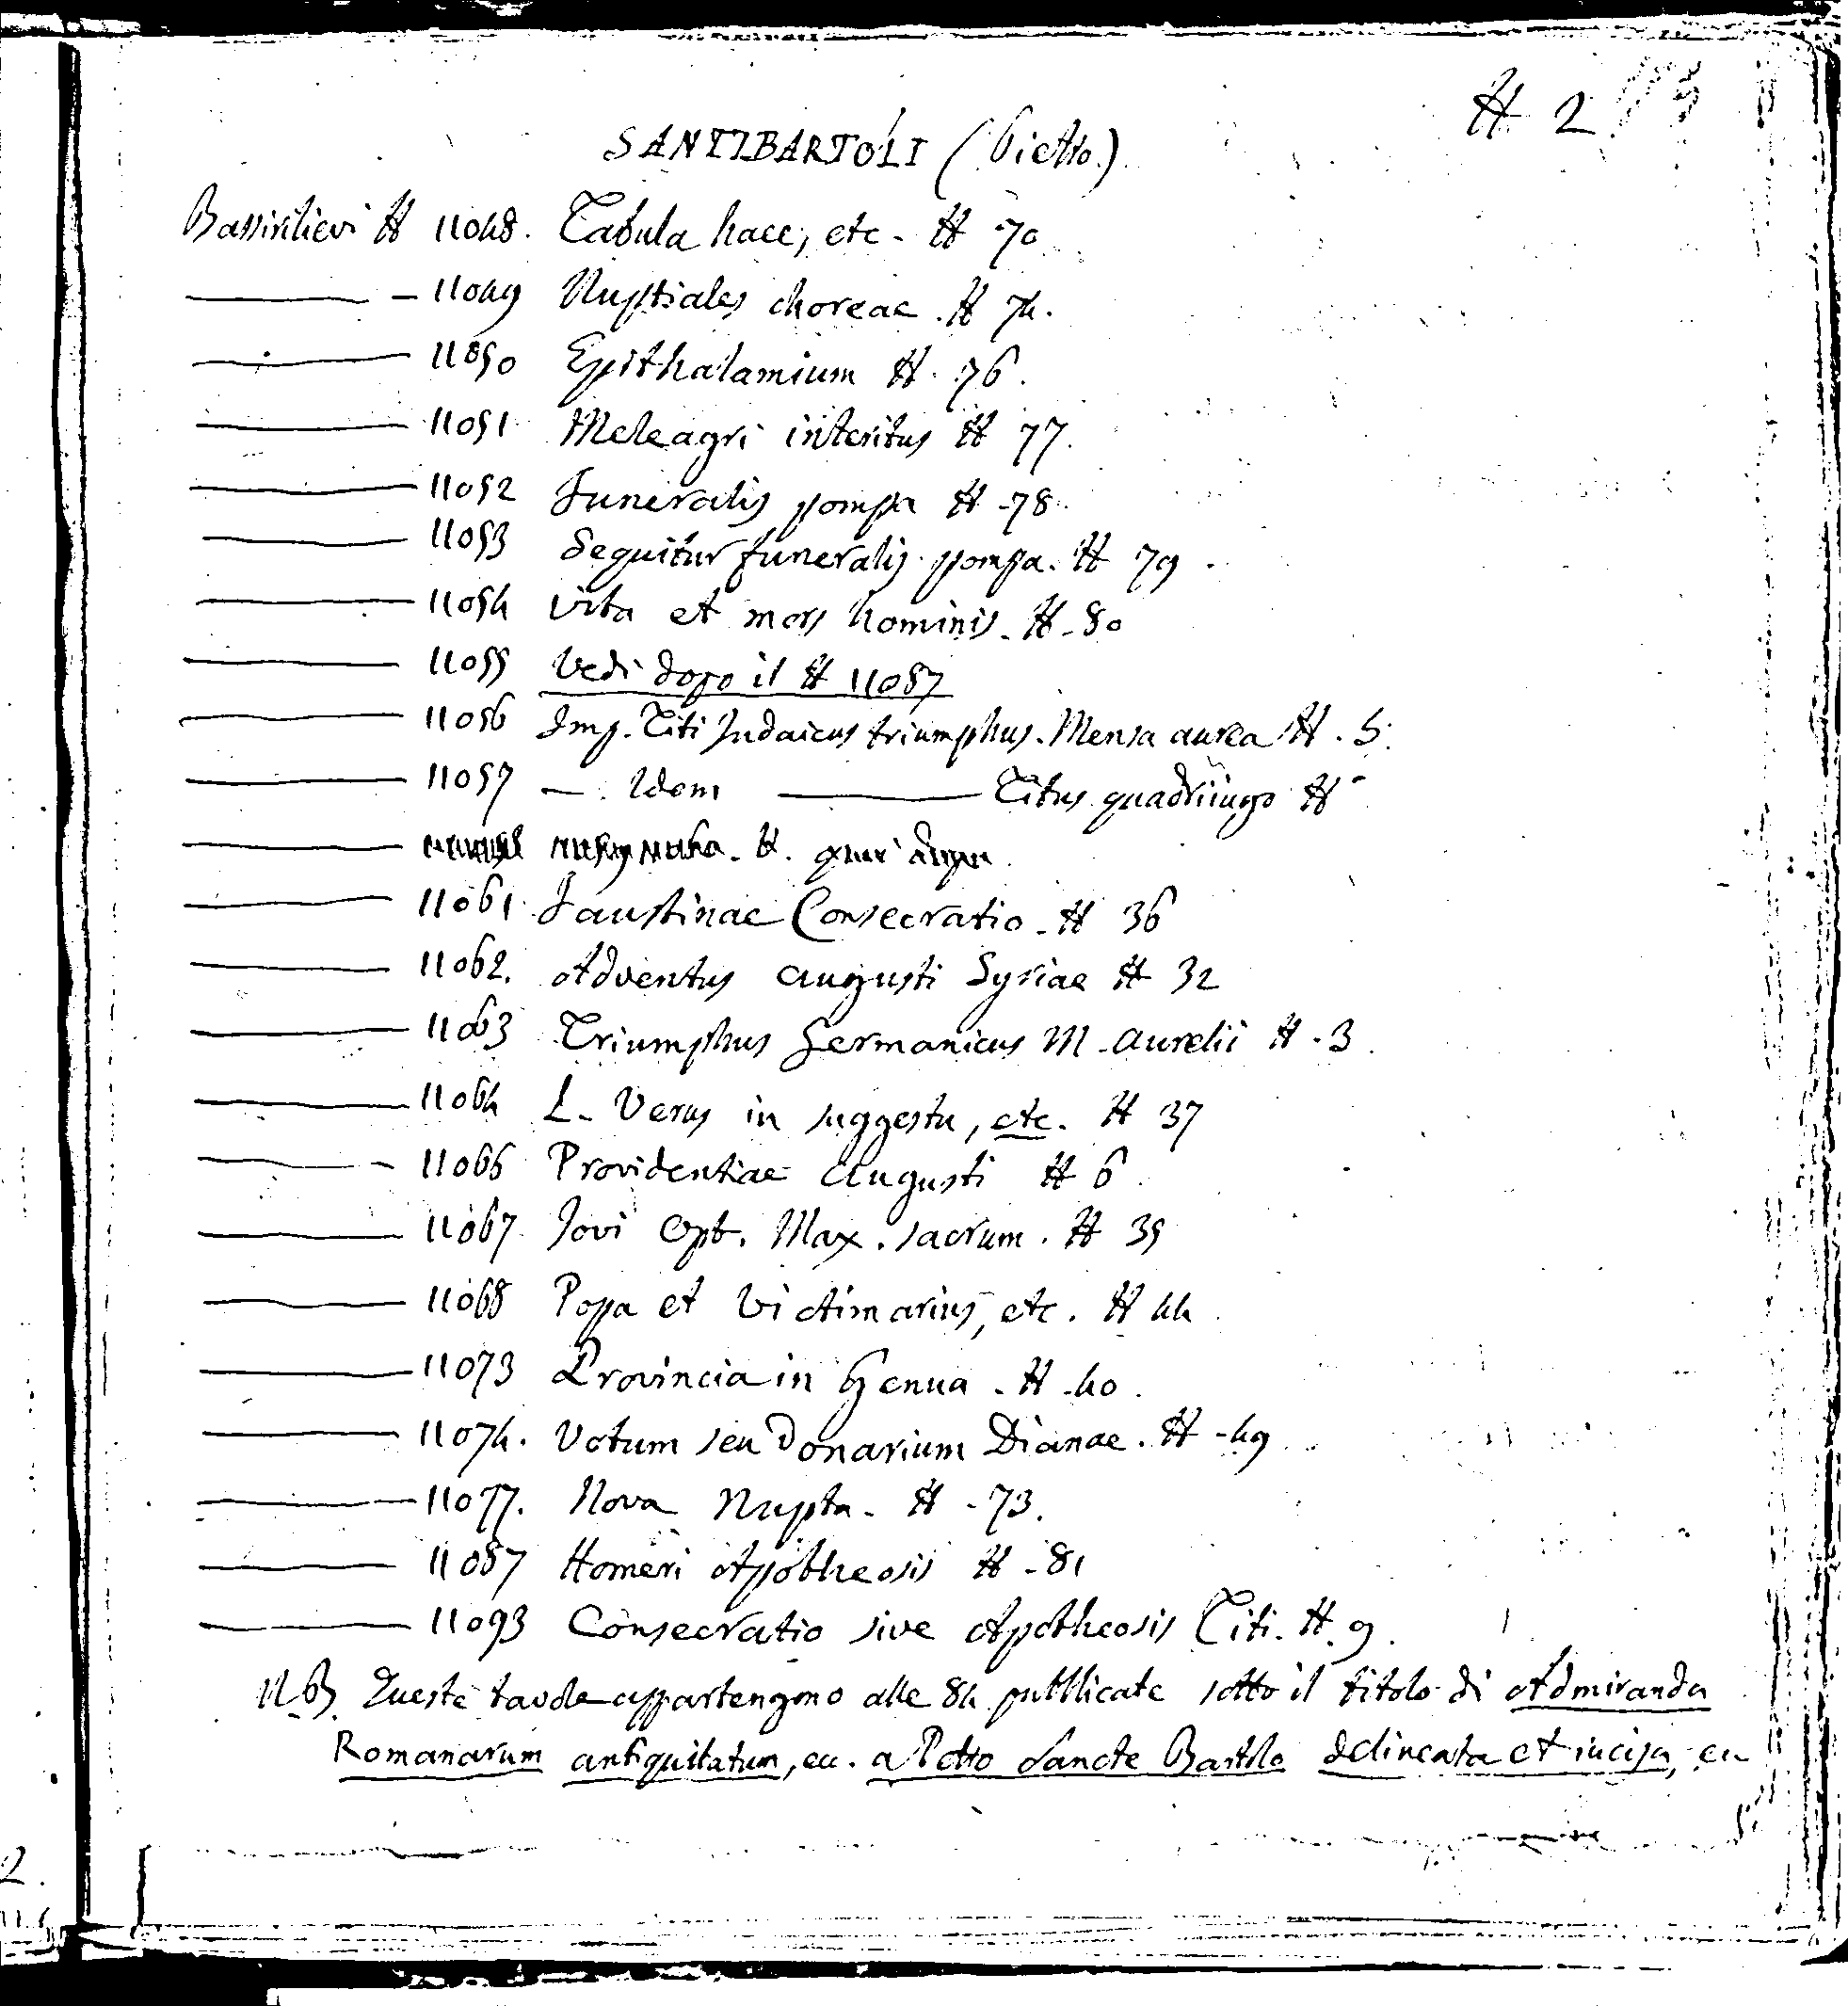 # 2
SANTIBARTOLI (Pietro.)
Bassirilievi # 11048. Tabula haec, etc. # 70
11049 Nuptiales choreae. # 74.
11050 Epithalamium #. 76.
11051 Meleagri interitus # 77.
11052 Funeralis pompa # 78.
11053 Sequitur funeralis pompa. # 79.
11054 Vita et mors hominis. # 80
11055 Vedi dopo il # 11087
11056 Imp. Titi Judaicus triumphus. Mensa aurea #. 5.
11057 — Idem — Titus quadriiugo #
11061 Faustinae Consecratio. # 36
11062. Adventus Augusti Syriae # 32
11063 Triumphus Germanicus M. Aurelii #. 3.
11064 L. Verus in suggestu, etc. # 37
11066 Providentiae Augusti # 6.
11067 Jovi Opt. Max. sacrum. # 39
11068 Popa et Victimarius, etc. # 44
11073 Provincia in Genua. # 40.
11074. Votum seu Donarium Dianae. # 49
11077. Nova Nupta. # 73.
11087 Homeri Apotheosis # 81
11093 Consecratio sive Apotheosis Titi. #. 9.
NB Queste tavole appartengono alle 84 pubblicate sotto il titolo di Admiranda
Romanarum antiquitatum, ec. a Petro Sancte Bartolo delineata et incisa, ec
2.